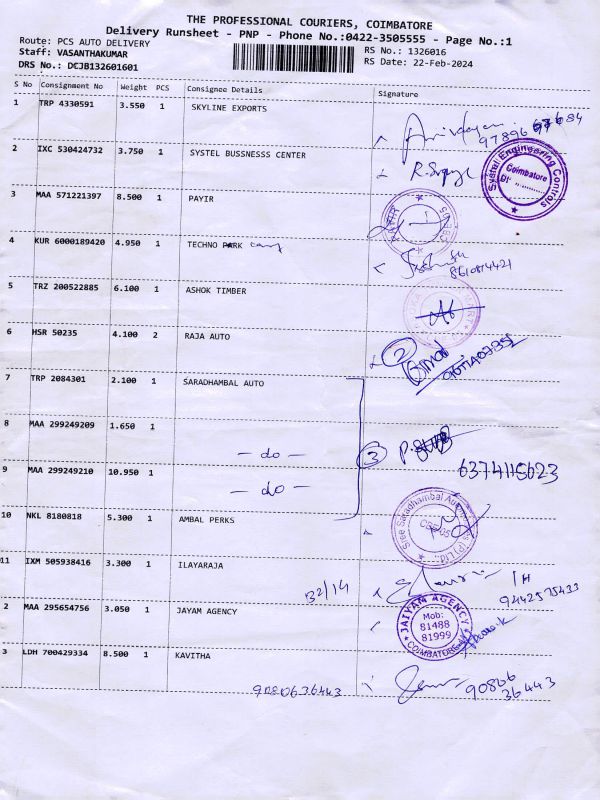 THE PROFESSIONAL COURIERS, COIMBATORE
Delivery Runsheet - PNP - Phone No.:0422-3505555 - Page No.:1
Route: PCS AUTO DELIVERY
RS No.: 1326016
Staff: VASANTHAKUMAR
RS Date: 22-Feb-2024
DRS No.: DCJB132601601
S No Consignment No Weight PCS Consignee Details Signature
1 TRP 4330591 3.550 1 SKYLINE EXPORTS
2 IXC 530424732 3.750 1 SYSTEL BUSSNESSS CENTER
Systel Engineering Controls
Coimbatore
3 MAA 571221397 8.500 1 PAYIR
4 KUR 6000189420 4.950 1 TECHNO PARK
5 TRZ 200522885 6.100 1 ASHOK TIMBER
6 HSR 50235 4.100 2 RAJA AUTO
2
7 TRP 2084301 2.100 1 SARADHAMBAL AUTO
8 MAA 299249209 1.650 1
- do -
3
6374115623
9 MAA 299249210 10.950 1
- do -
10 NKL 8180818 5.300 1 AMBAL PERKS
Sree Saradhambal
11 IXM 505938416 3.300 1 ILAYARAJA
32/14
9442575433
2 MAA 295654756 3.050 1 JAYAM AGENCY
JAIYAM AGENCY
Mob:
81488
81999
COIMBATORE
3 LDH 700429334 8.500 1 KAVITHA
9080636443
90806
36443